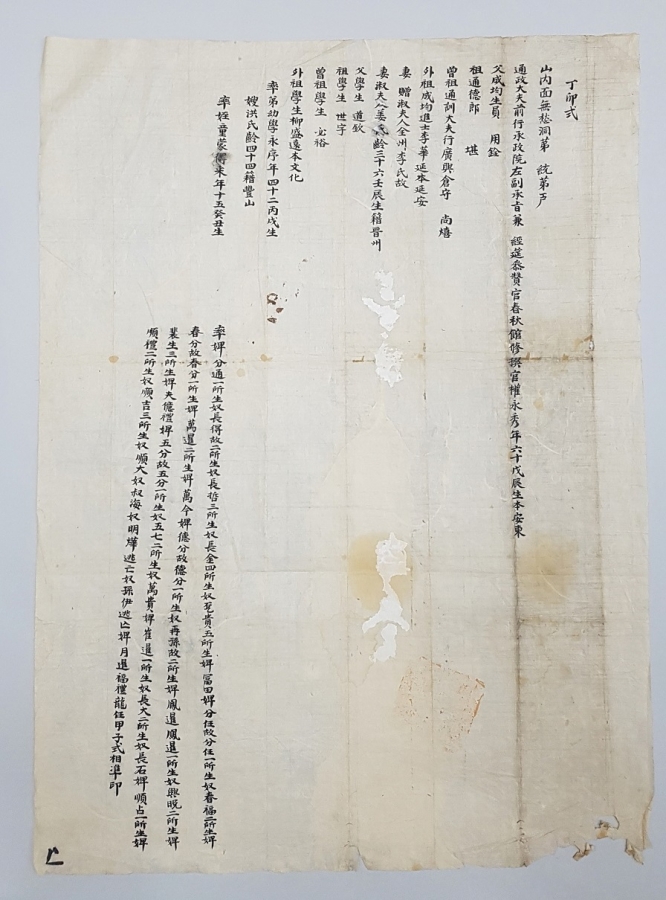 丁卯式
山內面無愁洞第 統第戶
通政大夫前行承政院左副承旨兼 經筵參贊官春秋館修撰官權永秀年六十戊辰生本安東
父成均生員 用銓
祖通德郎 堪
曾祖通訓大夫行廣興倉守 尚熺
外祖成均進士李華延本延安
妻 贈淑夫人全州李氏故
妻淑夫人姜氏齡三十六壬辰生籍晉州
父學生 道欽
祖學生 世宇
曾祖學生 必裕
外祖學生柳盛遠本文化
率弟幼學永序年四十二丙戌生
嫂洪氏齡四十四籍豐山
率姪童蒙 來年十五癸丑生
率婢分通一所生奴長得故二所生奴長哲三所生奴長金四所生奴至貴五所生婢富田婢分任故分任一所生奴春福二所生婢
春分故春分一所生婢萬暹二所生婢萬今婢德分故德分一所生奴再孫故二所生婢鳳暹鳳暹一所生奴興旼二所生婢
裴生三所生婢夫億禮婢五分故五分一所生奴五七二所生奴萬貴婢崔進一所生奴長大二所生奴長石婢順占一所生婢
順禮二所生奴順吉三所生奴順大奴叔海奴明燁逃亡奴孫伊逃亡婢月暹福禮龍任甲子式相準印